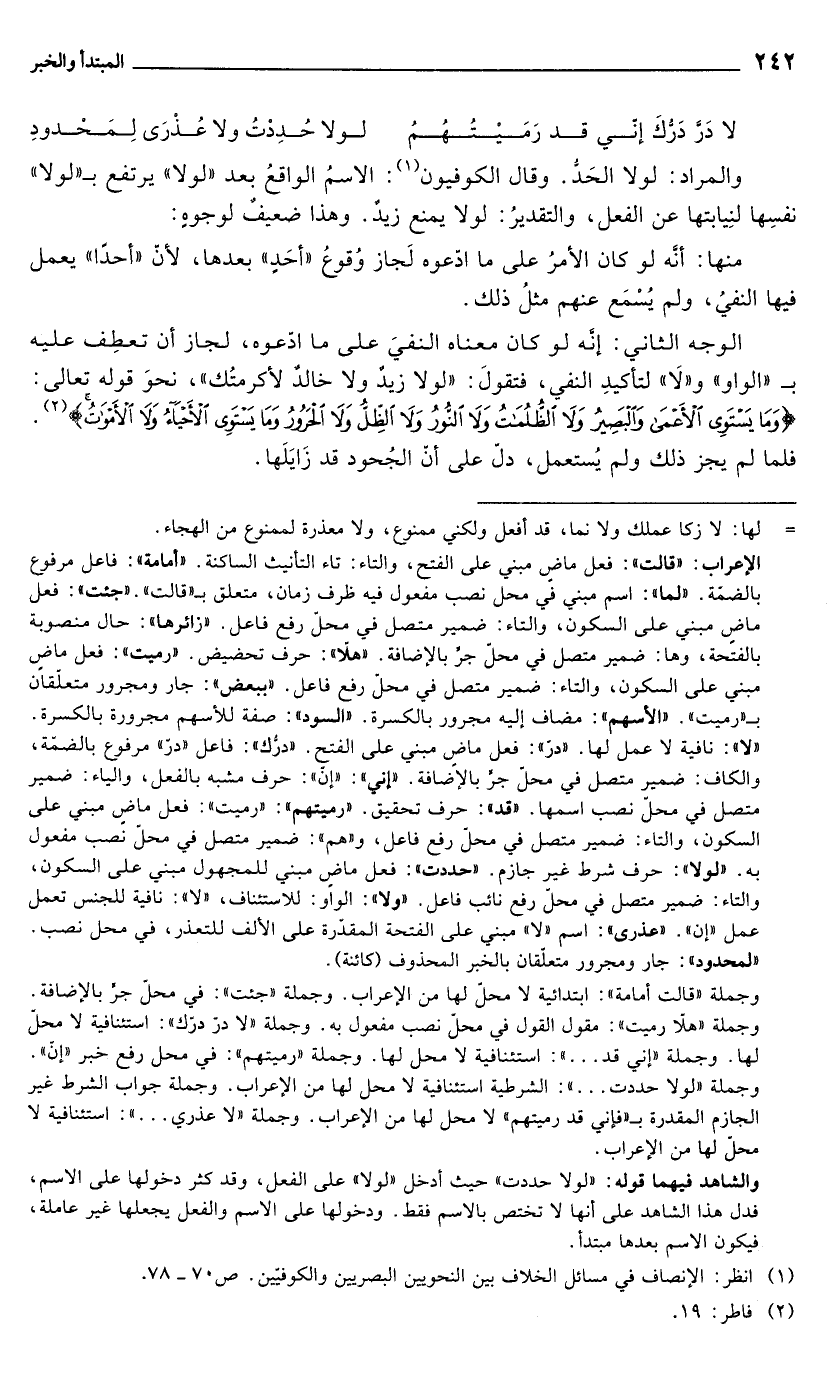 ٢٤٢ المبتدأ والخبر
لا دَرَّ دَرُّكَ إنّـي قـد رَمَـيْـتُـهُـمُ لـولا حُـدِدْتُ ولا عُـذْرَى لِـمَـحْـدودِ
والمراد: لولا الحَدُّ. وقال الكوفيون(١): الاسمُ الواقعُ بعد «لولا» يرتفع بـ«لولا»
نفسِها لنِيابتها عن الفعل، والتقديرُ: لولا يمنع زيدٌ. وهذا ضعيفٌ لوجوهٍ:
منها: أنّه لو كان الأمرُ على ما ادّعوه لَجاز وُقوعُ «أحَدٍ» بعدها، لأنّ «أحدًا» يعمل
فيها النفيُ، ولم يُسْمَع عنهم مثلُ ذلك.
الوجه الثاني: إنّه لو كان معناه النفيَ على ما ادّعوه، لجاز أن تعطِف عليه
بـ «الواو» و«لَا» لتأكيدِ النفي، فتقولَ: «لولا زيدٌ ولا خالدٌ لأكرمتُك»، نحوَ قوله تعالى:
﴿وَمَا يَسْتَوِى ٱلْأَعْمَىٰ وَٱلْبَصِيرُ وَلَا ٱلظُّلُمَٰتُ وَلَا ٱلنُّورُ وَلَا ٱلظِّلُّ وَلَا ٱلْحَرُورُ وَمَا يَسْتَوِى ٱلْأَحْيَآءُ وَلَا ٱلْأَمْوَٰتُ﴾(٢).
فلما لم يجز ذلك ولم يُستعمل، دلّ على أنّ الجُحود قد زَايَلَها.
= لها: لا زكا عملك ولا نما، قد أفعل ولكني ممنوع، ولا معذرة لممنوع من الهجاء.
الإعراب: «قالت»: فعل ماض مبني على الفتح، والتاء: تاء التأنيث الساكنة. «أمامة»: فاعل مرفوع
بالضمّة. «لما»: اسم مبني في محل نصب مفعول فيه ظرف زمان، متعلق بـ«قالت». «جئت»: فعل
ماضٍ مبني على السكون، والتاء: ضمير متصل في محلّ رفع فاعل. «زائرها»: حال منصوبة
بالفتحة، وها: ضمير متصل في محلّ جرّ بالإضافة. «هلّا»: حرف تحضيض. «رميت»: فعل ماضٍ
مبني على السكون، والتاء: ضمير متصل في محل رفع فاعل. «ببعض»: جار ومجرور متعلّقان
بـ«رميت». «الأسهم»: مضاف إليه مجرور بالكسرة. «السود»: صفة للأسهم مجرورة بالكسرة.
«لا»: نافية لا عمل لها. «درّ»: فعل ماضٍ مبني على الفتح. «درّك»: فاعل «درّ» مرفوع بالضمّة،
والكاف: ضمير متصل في محلّ جرّ بالإضافة. «إني»: «إنّ»: حرف مشبه بالفعل، والياء: ضمير
متصل في محلّ نصب اسمها. «قد»: حرف تحقيق. «رميتهم»: «رميت»: فعل ماضٍ مبني على
السكون، والتاء: ضمير متصل في محلّ رفع فاعل، و«هم»: ضمير متصل في محلّ نصب مفعول
به. «لولا»: حرف شرط غير جازم. «حددت»: فعل ماضٍ مبني للمجهول مبني على السكون،
والتاء: ضمير متصل في محلّ رفع نائب فاعل. «ولا»: الواو: للاستئناف، «لا»: نافية للجنس تعمل
عمل «إن». «عذرى»: اسم «لا» مبني على الفتحة المقدّرة على الألف للتعذر، في محل نصب.
«لمحدود»: جار ومجرور متعلّقان بالخبر المحذوف (كائنة).
وجملة «قالت أمامة»: ابتدائية لا محلّ لها من الإعراب. وجملة «جئت»: في محلّ جرّ بالإضافة.
وجملة «هلّا رميت»: مقول القول في محلّ نصب مفعول به. وجملة «لا درّ درّك»: استئنافية لا محلّ
لها. وجملة «إني قد...»: استئنافية لا محل لها. وجملة «رميتهم»: في محل رفع خبر «إنّ».
وجملة «لولا حددت...»: الشرطية استئنافية لا محل لها من الإعراب. وجملة جواب الشرط غير
الجازم المقدرة بـ«فإني قد رميتهم» لا محل لها من الإعراب. وجملة «لا عذري...»: استئنافية لا
محلّ لها من الإعراب.
والشاهد فيهما قوله: «لولا حددت» حيث أدخل «لولا» على الفعل، وقد كثر دخولها على الاسم،
فدل هذا الشاهد على أنها لا تختص بالاسم فقط. ودخولها على الاسم والفعل يجعلها غير عاملة،
فيكون الاسم بعدها مبتدأ.
(١) انظر: الإنصاف في مسائل الخلاف بين النحويين البصريين والكوفيّين. ص٧٠ ـ ٧٨.
(٢) فاطر: ١٩.